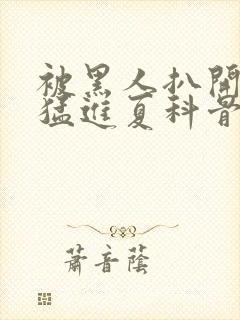 被黑人扒開
猛進夏科普
蕭音蔭